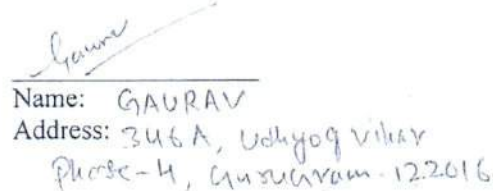 Gaurav
Name: GAURAV
Address: 346A, Udhyog vihar
Phase-4, Gurugram. 122016